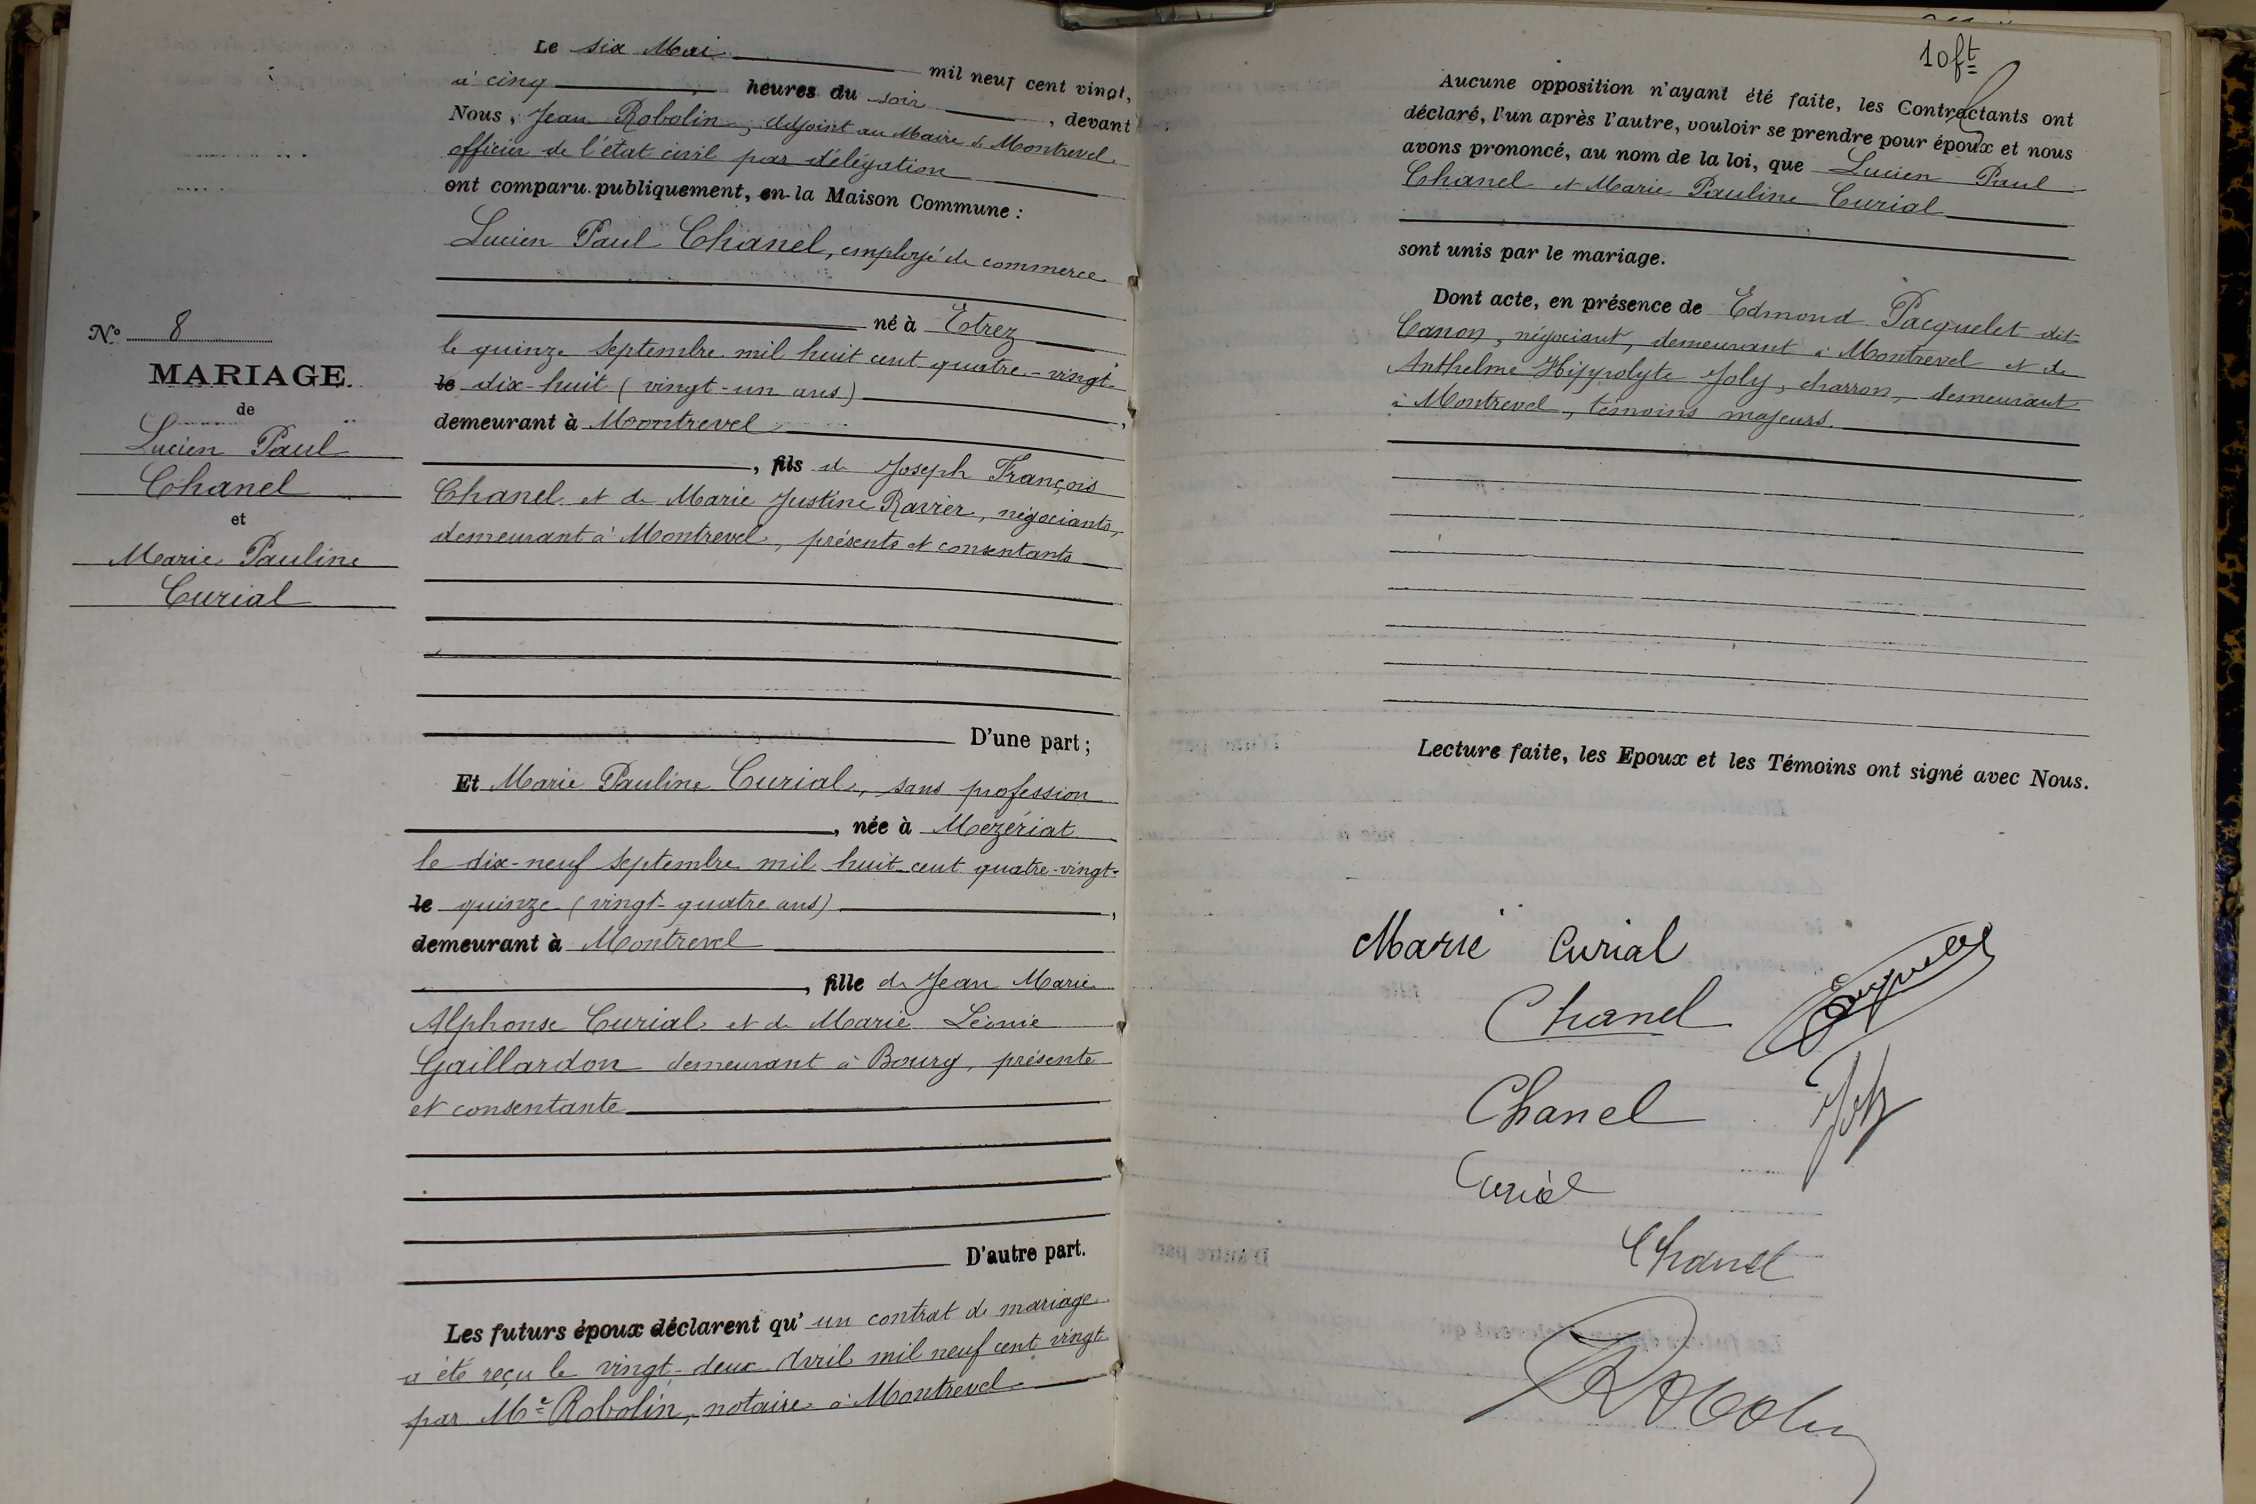 Le six Mai mil neuf cent vingt,
à cinq heures du soir, devant
Nous, Jean Robolin, adjoint au Maire de Montrevel
officier de l'état civil par délégation
ont comparu publiquement, en la Maison Commune :
Lucien Paul Chanel, employé de commerce
né à Etrez
le quinze Septembre mil huit cent quatre-vingt-
le dix-huit (vingt-un ans)
demeurant à Montrevel,
, fils de Joseph François
Chanel et de Marie Justine Ravier, négociants,
demeurant à Montrevel, présents et consentants
D'une part ;
Et Marie Pauline Curial, sans profession
, née à Mezériat
le dix-neuf Septembre mil huit cent quatre-vingt-
le quinze (vingt-quatre ans),
demeurant à Montrevel
, fille de Jean Marie
Alphonse Curial et de Marie Léonie
Gaillardon demeurant à Bourg, présente
et consentante
D'autre part.
Les futurs époux déclarent qu'un contrat de mariage
a été reçu le vingt-deux Avril mil neuf cent vingt
par Me Robolin, notaire à Montrevel
N° 8
MARIAGE.
de
Lucien Paul
Chanel
et
Marie Pauline
Curial
10 ft
Aucune opposition n'ayant été faite, les Contractants ont
déclaré, l'un après l'autre, vouloir se prendre pour époux et nous
avons prononcé, au nom de la loi, que Lucien Paul
Chanel et Marie Pauline Curial
sont unis par le mariage.
Dont acte, en présence de Edmond Pacquelet dit
Canon, négociant, demeurant à Montrevel et de
Anthelme Hippolyte Joly, charron, demeurant
à Montrevel, témoins majeurs.
Lecture faite, les Epoux et les Témoins ont signé avec Nous.
Marie Curial
Chanel
Pacquelet
Chanel
Joly
Curial
Chanel
Robolin